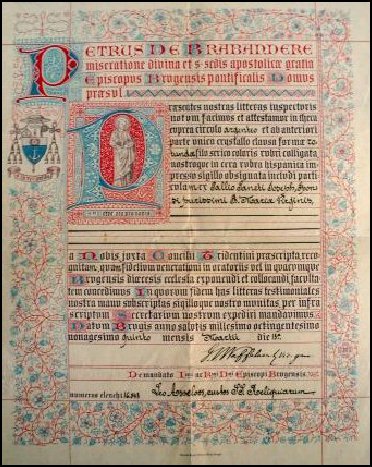 Petrus De Brabandere
miseratione divina et s. sedis apostolicæ gratia
Episcopus Brugensis pontificalis domus
præsul.
Præsentes nostras litteras inspecturis
notum facimus et attestamur in theca
cuprea circulo argenteo et ab anteriori
parte unico crystallo clausa formæ ro-
tunda filo serico coloris rubri colligata
nostroque in cera rubra hispanica im-
presso sigillo obsignata includi parti-
culam ex Pallio Sancti Joseph, Sponsi
Purissimi B. Mariæ Virginis.
a Nobis juxta Concilii Tridentini præscripta reco-
gnitam, quam fidelium venerationi in oratoriis vel in quacumque
Brugensis diœcesis ecclesia exponendi et collocandi faculta-
tem concedimus. In quorum fidem has litteras testimoniales
nostra manu subscriptas sigilloque nostro munitas, per infra
scriptum Secretarium nostrum expediri mandavimus.
Datum Brugis anno salutis millesimo octingentesimo
nonagesimo quinto mensis Martii die 15ª.
De mandato Ill. ac Rev. D. Episcopi Brugensis.
numerus elenchi